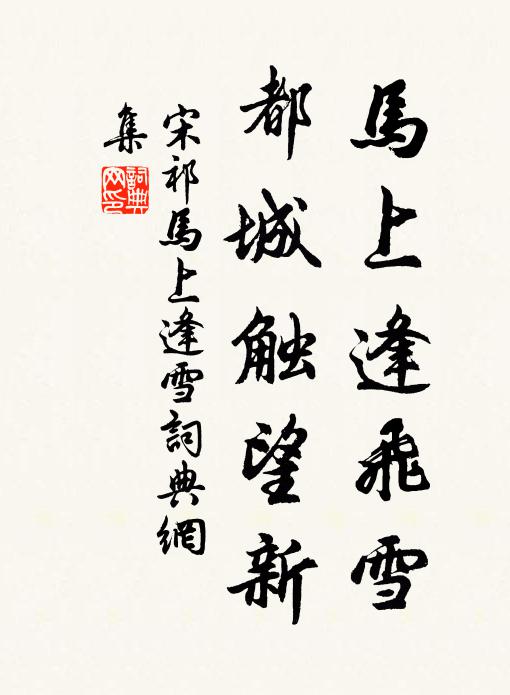 馬上逢飛雪
都城触望新
宋祁馬上逢雪詞典網
集
詞典
网印